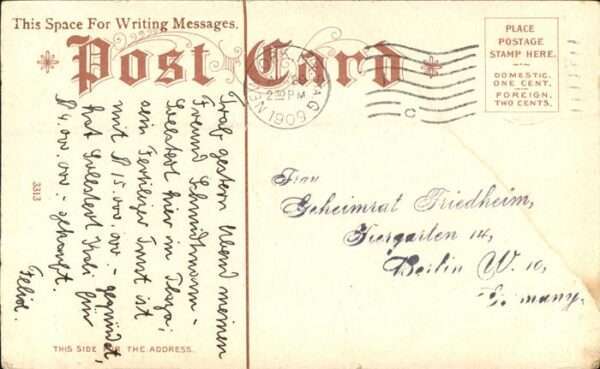 This Space For Writing Messages.
Post Card
PLACE
POSTAGE
STAMP HERE.
DOMESTIC,
ONE CENT.
FOREIGN,
TWO CENTS.
2 30 PM
1909
C
Traf gestern Abend meinen
Freund Schmidtmann-
hier in
sein Fertilizer Trust ist
mit $ 15.000.000 - gegründet,
hat Kali für
$ 4.000.000 - gekauft.
Felix.
Frau
Geheimrat Friedheim,
Tiergarten 14,
Berlin W. 10,
Germany.
3313
THIS SIDE FOR THE ADDRESS.